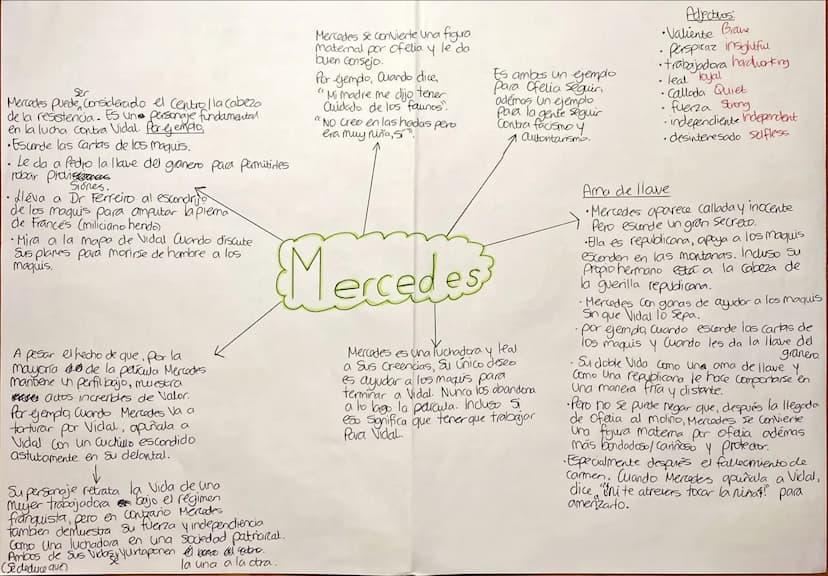 Mercedes
ser
Mercedes puede considerado el centro/la cabeza
de la resistencia. Es un personaje fundamental
en la lucha contra Vidal. Por ejemplo,
• Esconde las cartas de los maquis.
• Le da a Pedro la llave del granero para permitirles
robar provisiones.
• lleva a Dr Ferreiro al escondrijo
de los maquis para amputar la pierna
de Francés (miliciano herido)
• Mira a la mapa de Vidal cuando discute
sus planes para morirse de hambre a los
maquis.
Mercedes se convierte una figura
maternal por Ofelia y le da
buen consejo.
Por ejemplo, cuando dice,
"Mi madre me dijo tener
cuidado de los faunos".
"No creo en las hadas pero
era muy niña, sí".
Es ambos un ejemplo
para Ofelia seguir,
además un ejemplo
para la gente seguir
contra facismo y
autoritarismo.
Adjectivos:
• Valiente Brave
• perspicaz insightful
• trabajadora hardworking
• leal loyal
• callada Quiet
• fuerza strong
• independiente independent
• desinteresado selfless
Ama de llave
• Mercedes aparece callada y inocente
pero esconde un gran secreto.
• Ella es republicana, apoya a los maquis
esconden en las montanas. Incluso su
propio hermano está a la cabeza de
la guerilla republicana.
• Mercedes con ganas de ayudar a los maquis
sin que Vidal lo sepa.
• por ejemplo, cuando esconde las cartas de
los maquis y cuando les da la llave del
granero.
• Su doble vida como una ama de llave y
como una republicana le hace comportarse en
una manera fría y distante.
• Pero no se puede negar que, después la llegada
de Ofelia al molino, Mercedes se convierte
una figura materna por ofelia además
más bondadoso/cariñoso y protector.
• Especialmente después el fallecimiento de
carmen. Cuando Mercedes apuñala a Vidal,
dice, "¡ni te atreves tocar la niña!" para
amenzarlo.
A pesar el hecho de que, por la
mayoría de la película Mercedes
mantiene un perfil bajo, muestra
actos increbles de valor.
Por ejemplo, cuando Mercedes va a
torturar por Vidal, apuñala a
Vidal con un cuchillo escondido
astutamente en su delantal.
Su personaje retrata la vida de una
mujer trabajadora bajo el régimen
franquista, pero en contrario Mercedes
también demuestra su fuerza y independencia
como una luchadora en una sociedad patriarcal.
Ambos de sus vidas se yuxtaponen
(se deduce que) la una a la otra.
Mercedes es una luchadora y leal
a sus creencias, su único deseo
es ayudar a los maquis para
terminar a Vidal. Nunca los abandona
a lo largo la película. Incluso si
eso significa que tener que trabajar
para Vidal.